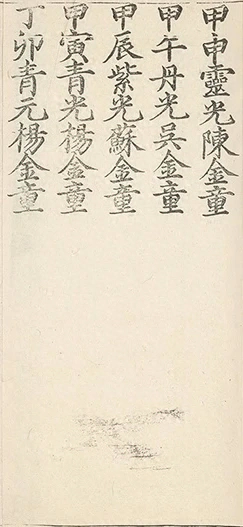 甲申靈光陳金童
甲午丹光吳金童
甲辰紫光蘇金童
甲寅青光楊金童
丁卯青元楊金童